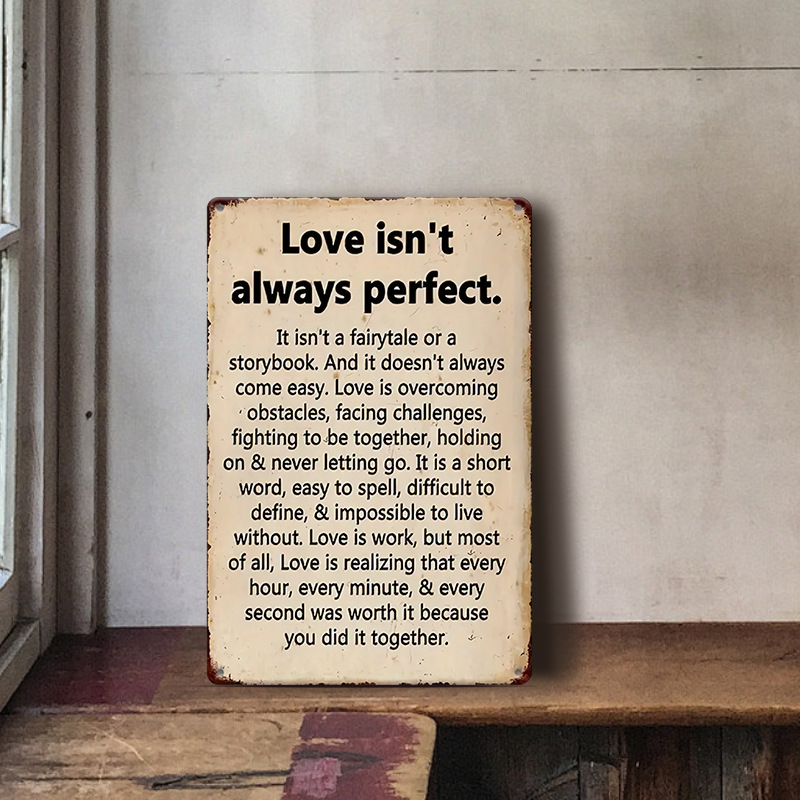 Love isn't
always perfect.
It isn't a fairytale or a
storybook. And it doesn't always
come easy. Love is overcoming
obstacles, facing challenges,
fighting to be together, holding
on & never letting go. It is a short
word, easy to spell, difficult to
define, & impossible to live
without. Love is work, but most
of all, Love is realizing that every
hour, every minute, & every
second was worth it because
you did it together.